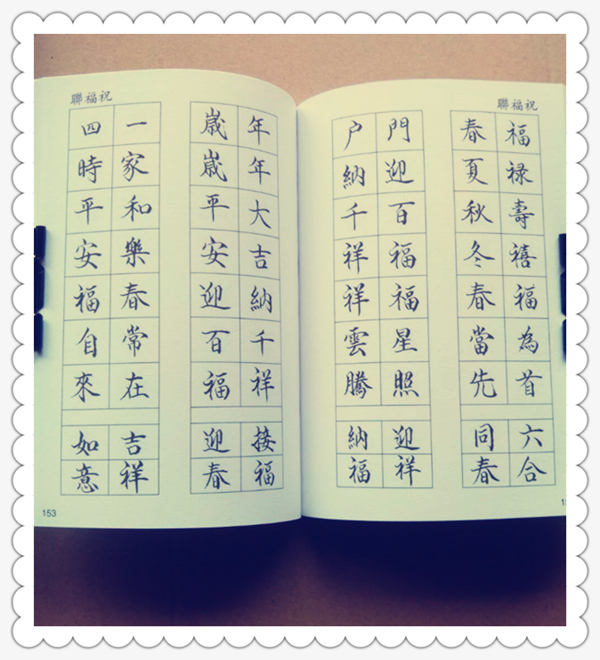 祝福聯
福禄壽禧福為首
春夏秋冬春當先
六合
同春
門迎百福福星照
户納千祥祥雲騰
迎祥
納福
祝福聯
年年大吉納千祥
歲歲平安迎百福
接福
迎春
一家和樂春常在
四時平安福自來
吉祥
如意
153